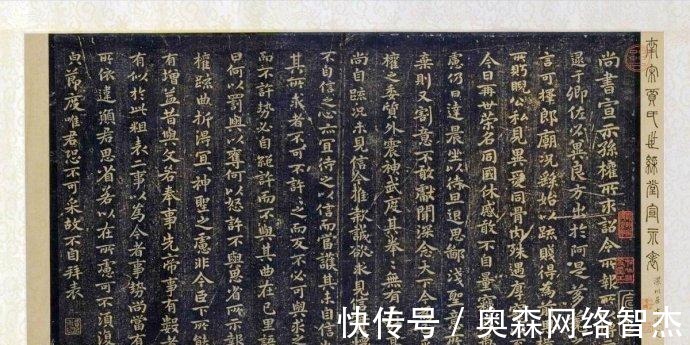 南宋賈氏世綵堂宣示表
尚書宣示孫權所求詔令所報所
逮于卿佐必冀良方出於阿是芻
言可擇郎廟況繇始以疏賤得為
所眄睨公私見異愛同骨肉殊遇厚
今日再世榮名同國休慼敢不自量竊
慮仍日達晨坐以待旦退思鄙淺聖
棄則又割意不敢獻聞深念天下今
權之委質外震神武度其拳拳無有
尚自疏況未見信今推款誠欲求見信
不自信之心亦宜待之以信而當護其未自信
其所求者不可不許許之而反不必可與求之
而不許勢必自絕許而不與其曲在己里語
曰何以罰與以奪何以怒許不與思省所示報
權疏曲折得宜宜神聖之慮非今臣下所能
有增益昔與文若奉事先帝事有數者
有似於此粗表二事以為今者事勢尚當有
所依違願君思省若以在所慮可不須復
皃節度唯君恐不可采故不自拜表
快传号 / 奥森网络智杰